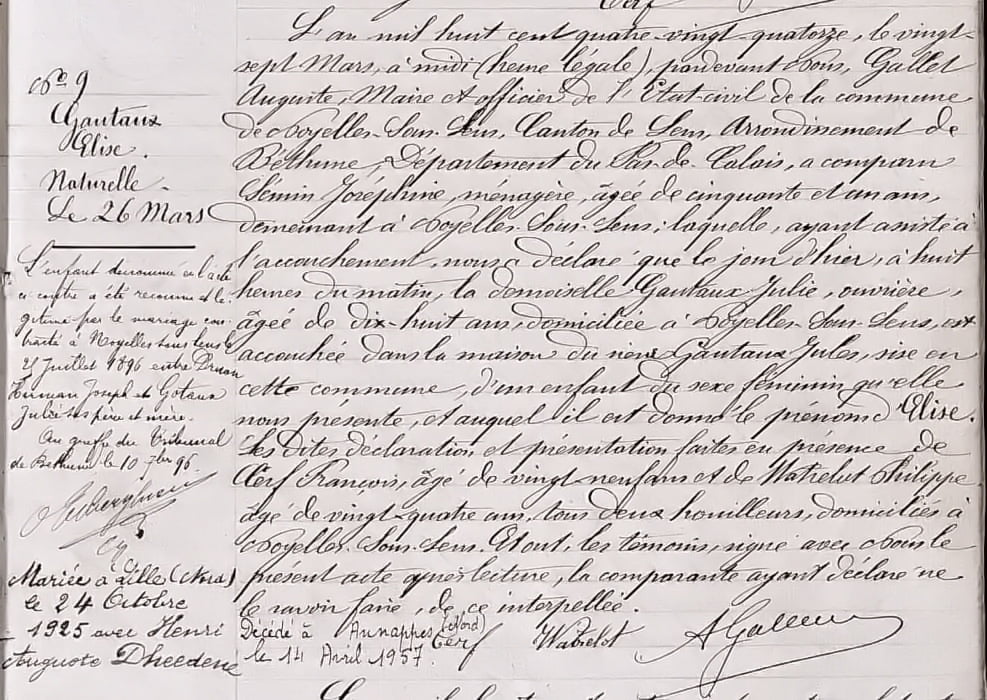 Nº 9
Gautaux
Elise.
Naturelle.
Le 26 Mars
L'enfant dénommé en l'acte
ci contre a été reconnu et lé-
gitimé par le mariage con-
tracté à Noyelles sous Lens le
25 Juillet 1896 entre Druon
Herman Joseph et Gotaux
Julie ses père et mère.
Au greffe du Tribunal
de Béthune le 10 7bre 96.
Mariée à Lille (Nord)
le 24 Octobre
1925 avec Henri
Auguste Dheedene
Cerf
L'an mil huit cent quatre-vingt-quatorze, le vingt-
sept Mars, à midi (heure légale), pardevant Nous, Gallet
Auguste, Maire et officier de l'Etat-civil de la commune
de Noyelles-Sous-Lens, Canton de Lens, Arrondissement de
Béthune, Département du Pas-de-Calais, a comparu
Joséphine, ménagère, âgée de cinquante et un ans,
demeurant à Noyelles-Sous-Lens; laquelle, ayant assisté à
l'accouchement, nous a déclaré que le jour d'hier, à huit
heures du matin, la demoiselle Gautaux Julie, ouvrière,
âgée de dix-huit ans, domiciliée à Noyelles-Sous-Lens, est
accouchée dans la maison du sieur Gautaux Jules, sise en
cette commune, d'un enfant du sexe féminin qu'elle
nous présente, et auquel il est donné le prénom d'Elise.
Les dites déclaration et présentation faites en présence de
Cerf François, âgé de vingt-neuf ans et de Watrelot Philippe
âgé de vingt-quatre ans, tous deux houilleurs, domiciliés à
Noyelles-Sous-Lens. Et ont, les témoins, signé avec Nous le
présent acte après lecture, la comparante ayant déclaré ne
le savoir faire, de ce interpellée.
Décédé à Annappes (Nord)
le 14 Avril 1957.
Cerf Watrelot A Gallet